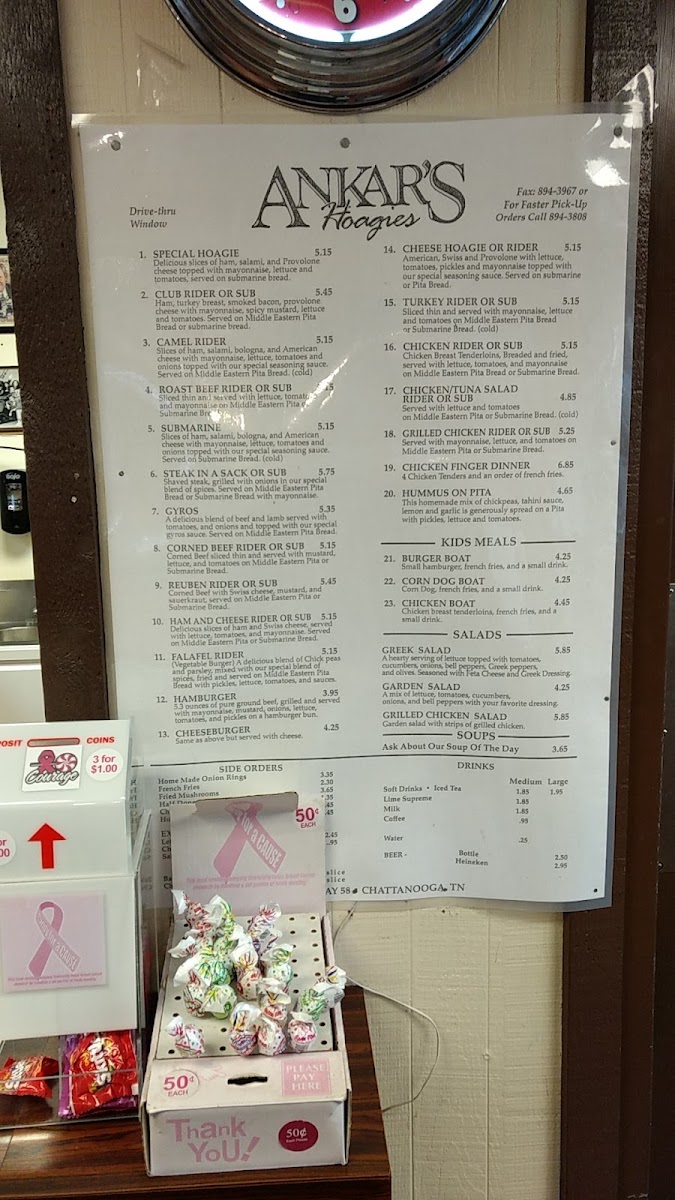 6
ANKAR'S
Hoagies
Drive-thru
Window
Fax: 894-3967 or
For Faster Pick-Up
Orders Call 894-3808
1. SPECIAL HOAGIE 5.15
Delicious slices of ham, salami, and Provolone
cheese topped with mayonnaise, lettuce and
tomatoes, served on submarine bread.
2. CLUB RIDER OR SUB 5.45
Ham, turkey breast, smoked bacon, provolone
cheese with mayonnaise, spicy mustard, lettuce
and tomatoes. Served on Middle Eastern Pita
Bread or submarine bread.
3. CAMEL RIDER 5.15
Slices of ham, salami, bologna, and American
cheese with mayonnaise, lettuce, tomatoes and
onions topped with our special seasoning sauce.
Served on Middle Eastern Pita Bread. (cold)
4. ROAST BEEF RIDER OR SUB 5.15
Sliced thin and served with lettuce, tomatoes
and mayonnaise on Middle Eastern Pita or
Submarine Bread.
5. SUBMARINE 5.15
Slices of ham, salami, bologna, and American
cheese with mayonnaise, lettuce, tomatoes and
onions topped with our special seasoning sauce.
Served on Submarine Bread. (cold)
6. STEAK IN A SACK OR SUB 5.75
Shaved steak, grilled with onions in our special
blend of spices. Served on Middle Eastern Pita
Bread or Submarine Bread with mayonnaise.
7. GYROS 5.35
A delicious blend of beef and lamb served with
tomatoes, and onions and topped with our special
gyros sauce. Served on Middle Eastern Pita Bread.
8. CORNED BEEF RIDER OR SUB 5.15
Corned Beef sliced thin and served with mustard,
lettuce, and tomatoes on Middle Eastern Pita or
Submarine Bread.
9. REUBEN RIDER OR SUB 5.45
Corned Beef with Swiss cheese, mustard, and
sauerkraut, served on Middle Eastern Pita or
Submarine Bread.
10. HAM AND CHEESE RIDER OR SUB 5.15
Delicious slices of ham and Swiss cheese, served
with lettuce, tomatoes, and mayonnaise. Served
on Middle Eastern Pita or Submarine Bread.
11. FALAFEL RIDER 5.15
(Vegetable Burger) A delicious blend of Chick peas
and parsley, mixed with our special blend of
spices, fried and served on Middle Eastern Pita
Bread with pickles, lettuce, tomatoes, and sauces.
12. HAMBURGER 3.95
5.3 ounces of pure ground beef, grilled and served
with mayonnaise, mustard, onions, lettuce,
tomatoes, and pickles on a hamburger bun.
13. CHEESEBURGER 4.25
Same as above but served with cheese.
14. CHEESE HOAGIE OR RIDER 5.15
American, Swiss and Provolone with lettuce,
tomatoes, pickles and mayonnaise topped with
our special seasoning sauce. Served on submarine
or Pita Bread.
15. TURKEY RIDER OR SUB 5.15
Sliced thin and served with mayonnaise, lettuce
and tomatoes on Middle Eastern Pita Bread
or Submarine Bread. (cold)
16. CHICKEN RIDER OR SUB 5.15
Chicken Breast Tenderloins, Breaded and fried,
served with lettuce, tomatoes, and mayonnaise
on Middle Eastern Pita Bread or Submarine Bread.
17. CHICKEN/TUNA SALAD
RIDER OR SUB 4.85
Served with lettuce and tomatoes
on Middle Eastern Pita or Submarine Bread. (cold)
18. GRILLED CHICKEN RIDER OR SUB 5.25
Served with mayonnaise, lettuce, and tomatoes on
Middle Eastern Pita or Submarine Bread.
19. CHICKEN FINGER DINNER 6.85
4 Chicken Tenders and an order of french fries.
20. HUMMUS ON PITA 4.65
This homemade mix of chickpeas, tahini sauce,
lemon and garlic is generously spread on a Pita
with pickles, lettuce and tomatoes.
KIDS MEALS
21. BURGER BOAT 4.25
Small hamburger, french fries, and a small drink.
22. CORN DOG BOAT 4.25
Corn Dog, french fries, and a small drink.
23. CHICKEN BOAT 4.45
Chicken breast tenderloins, french fries, and a
small drink.
SALADS
GREEK SALAD 5.85
A hearty serving of lettuce topped with tomatoes,
cucumbers, onions, bell peppers, Greek peppers,
and olives. Seasoned with Feta Cheese and Greek Dressing.
GARDEN SALAD 4.25
A mix of lettuce, tomatoes, cucumbers,
onions, and bell peppers with your favorite dressing.
GRILLED CHICKEN SALAD 5.85
Garden salad with strips of grilled chicken.
SOUPS
Ask About Our Soup Of The Day 3.65
SIDE ORDERS
Home Made Onion Rings 3.35
French Fries 2.30
Fried Mushrooms 3.65
.35
.45
.45
2.45
.95
slice
slice
DRINKS
Medium Large
Soft Drinks • Iced Tea 1.85 1.95
Lime Supreme 1.85
Milk 1.85
Coffee .95
Water .25
BEER - Bottle 2.50
Heineken 2.95
AY 58 • CHATTANOOGA, TN
POSIT COINS
Courage
3 for
$1.00
for a CAUSE
50¢
EACH
for a CAUSE
50¢
EACH
PLEASE
PAY
HERE
Thank
You!
50¢